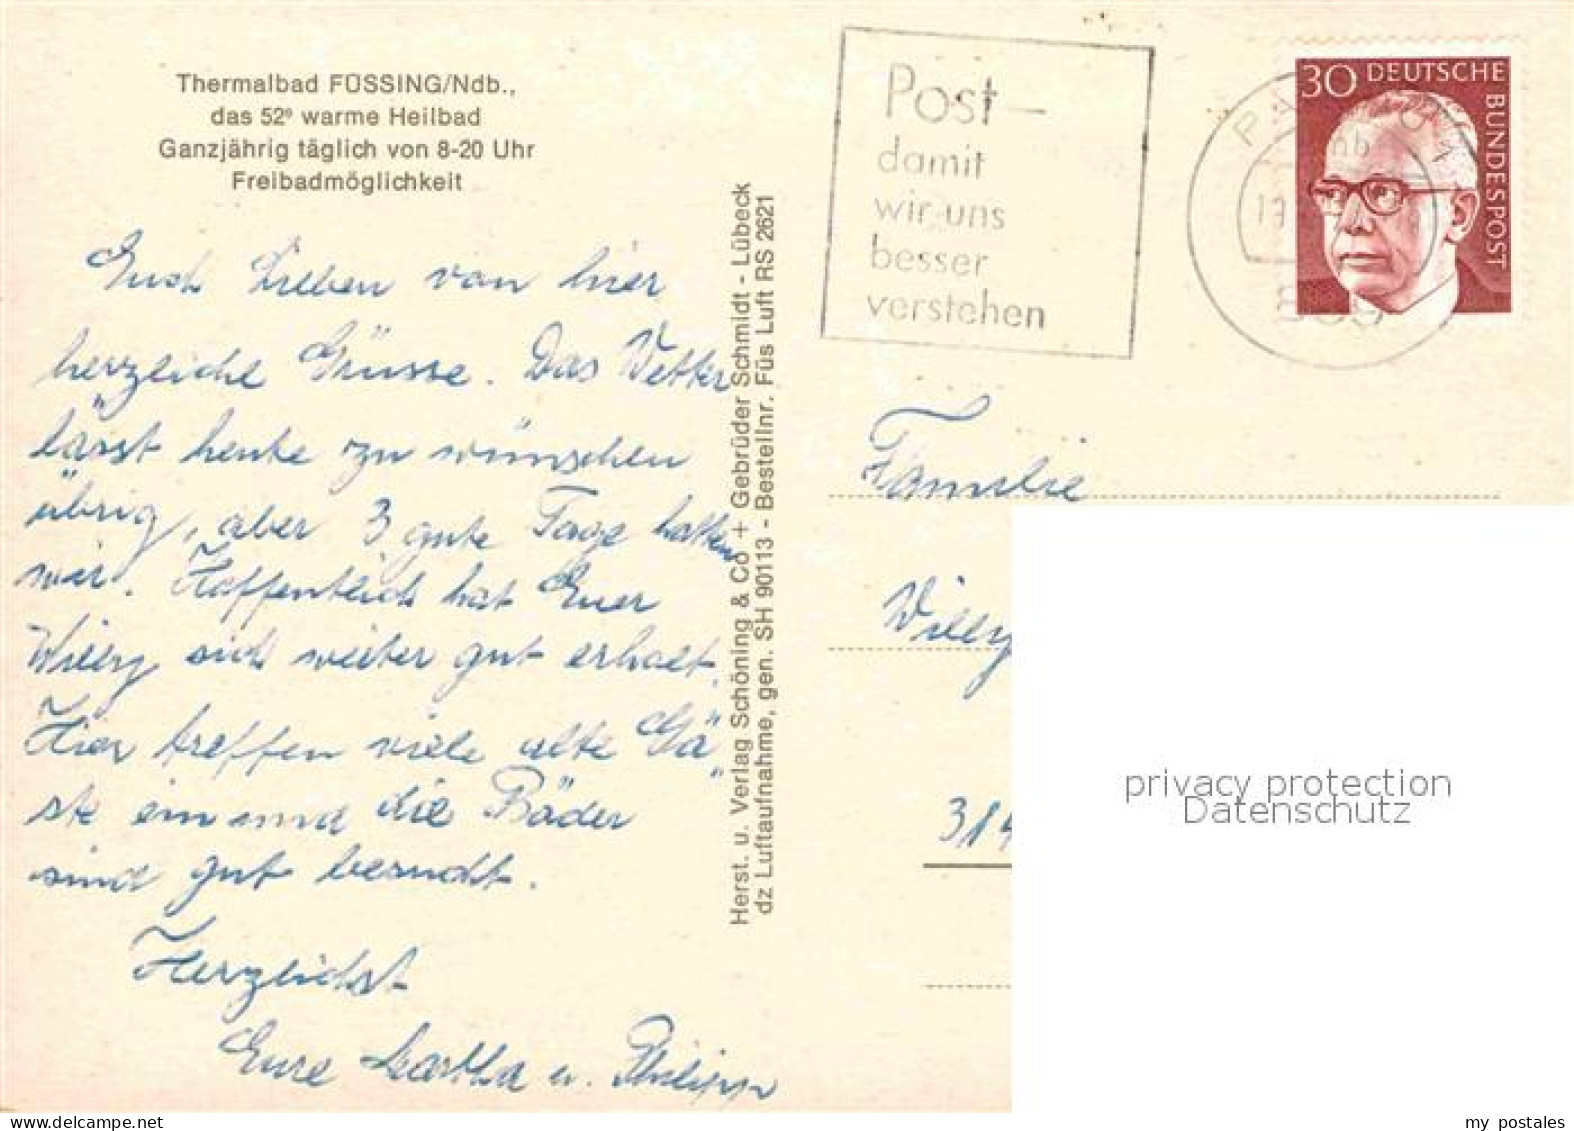 Thermalbad FÜSSING/Ndb.,
das 52° warme Heilbad
Ganzjährig täglich von 8-20 Uhr
Freibadmöglichkeit
Euch Lieben von hier
herzliche Grüsse. Das Wetter
lässt heute zu wünschen
übrig, aber 3 gute Tage hatten
wir. Hoffentlich hat Euer
Willy sich weiter gut erholt.
Hier treffen viele alte Gä
ste ein und die Bäder
sind gut besucht.
Herzlichst
Eure Martha u. Philipp
Herst. u. Verlag Schöning & Co + Gebrüder Schmidt - Lübeck
dz Luftaufnahme, gen. SH 90113 - Bestellnr. Füs Luft RS 2621
Post –
damit
wir uns
besser
verstehen
30 DEUTSCHE
BUNDESPOST
Familie
Willy
314
privacy protection
Datenschutz
my postales